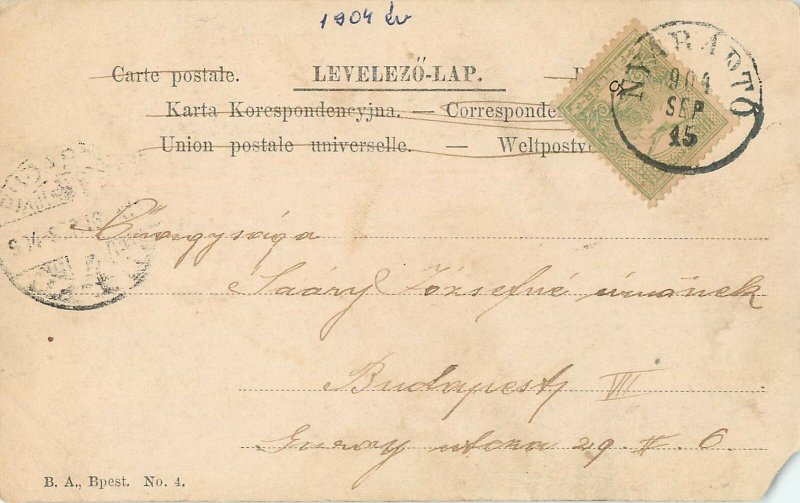 1904 év
Carte postale. LEVELEZŐ-LAP.
Karta Korespondencyjna. — Corresponde
Union postale universelle. — Weltpostv
NYÁRÁDTŐ
904
SEP
15
Saáry Józsefné úrnőnek
Budapest VII
utcza 29. II. 6
B. A., Bpest. No. 4.